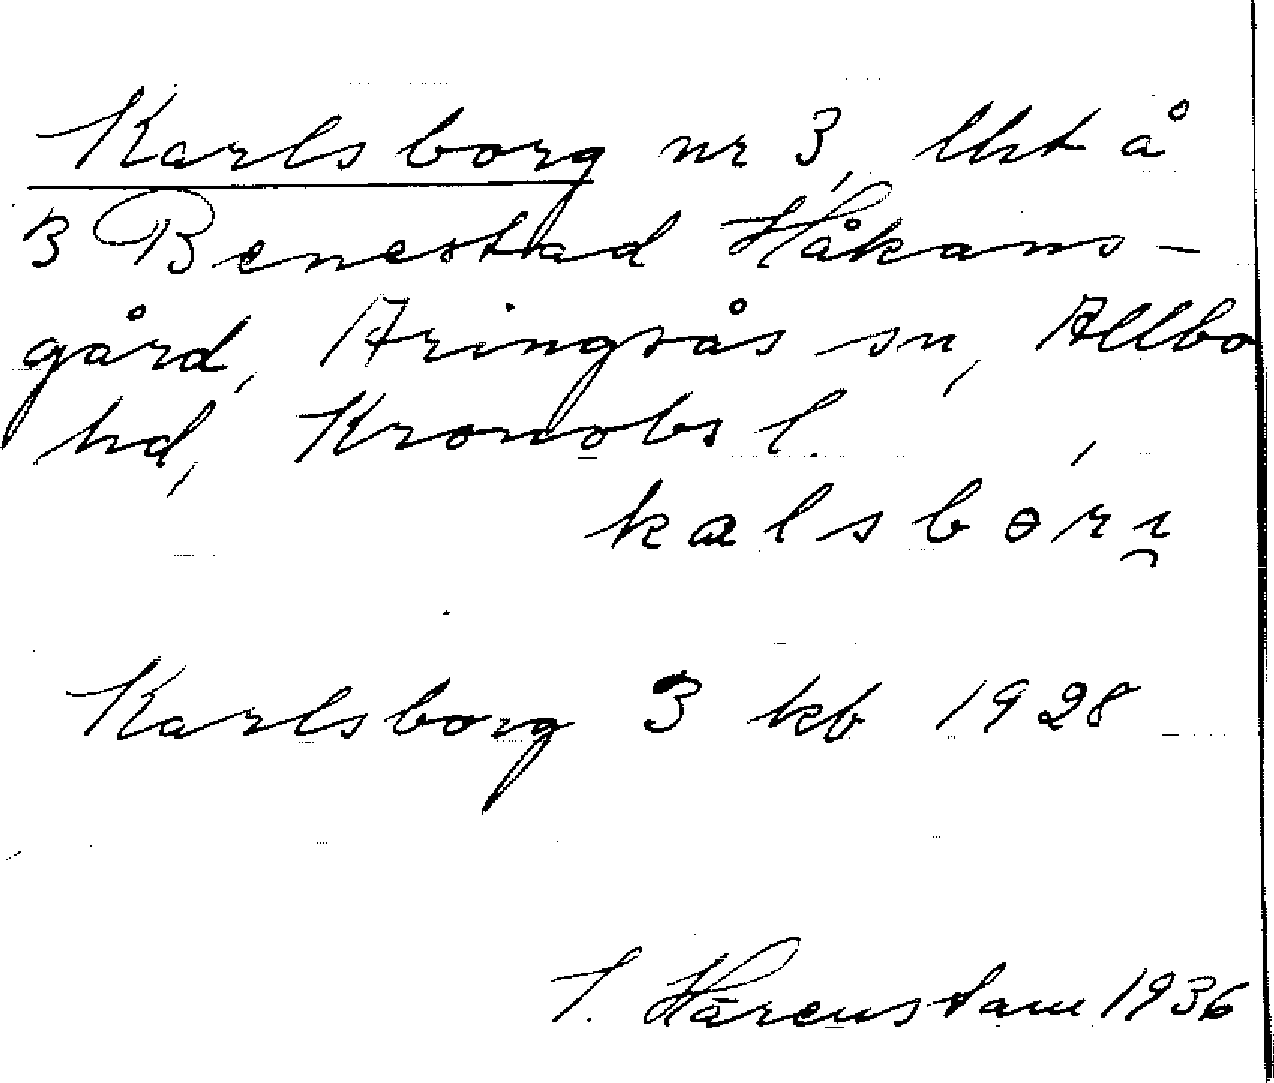 Karlsborg nr 3, lht å
3 Benestad Håkans-
gård, Aringsås sn, Allbo
hd, Kronobs l.
kalsbɵrı̯
Karlsborg 3 kb 1928
I. Härenstam 1936